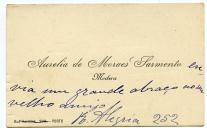 Aurelia de Moraes Sarmento en
Medica
via um grande abraço ao
velho amigo
R. Alegria 252
PORTO